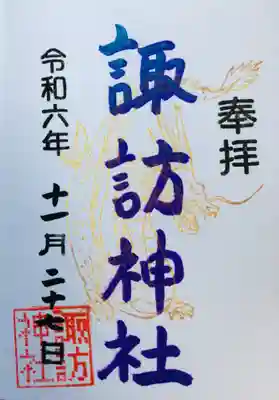 奉拝
諏訪神社
令和六年 十一月 二十七日
諏訪
神社